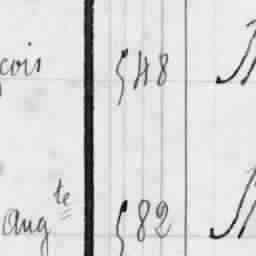 çois 548
Aug te 582